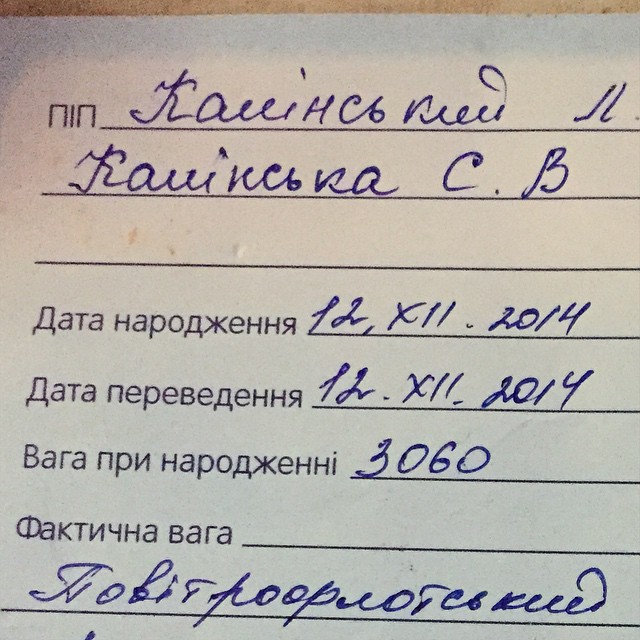 ПІП Камінський Л.
Камінська С. В
Дата народження 12. XII. 2014
Дата переведення 12. XII. 2014
Вага при народженні 3060
Фактична вага
Повітрофлотський